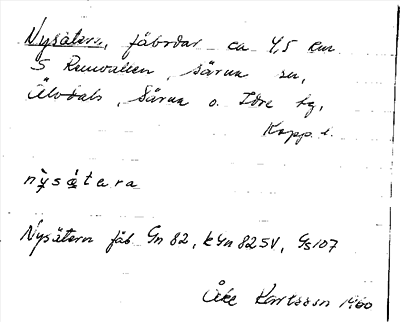 Nysätern, fäbodar ca 4,5 km
S Remvallen, Särna sn,
Älvdals, Särna o. Idre tg,
Kopp. l.
nysätera
Nysätern fäb Gn 82, kGn 82 SV, Gs 107
Åke Karlsson 1960